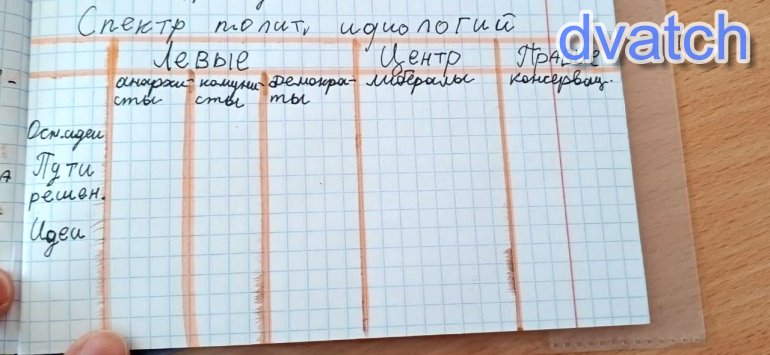 Спектр полит. идиологий
dvatch
Левые Центр Правые
анархи- комуни- демокра- либералы консервац.
сты сты ты
Осн. идеи
Пути
решен.
Идеи